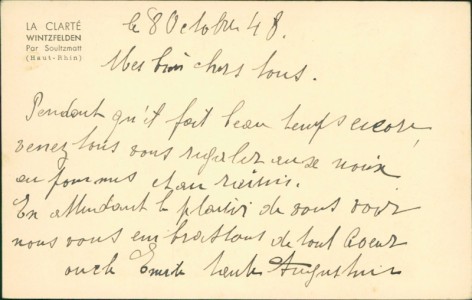 LA CLARTÉ
WINTZFELDEN
Par Soultzmatt
(Haut-Rhin)
le 8 Octobre 48.
Mes bien chers tous.
Pendant qu'il fait beau temps encore
venez tous vous régaler aux noix
au pommes et au raisins.
En attendant le plaisir de vous voir
nous vous embrassons de tout Coeur
oncle Emile tante Augustine